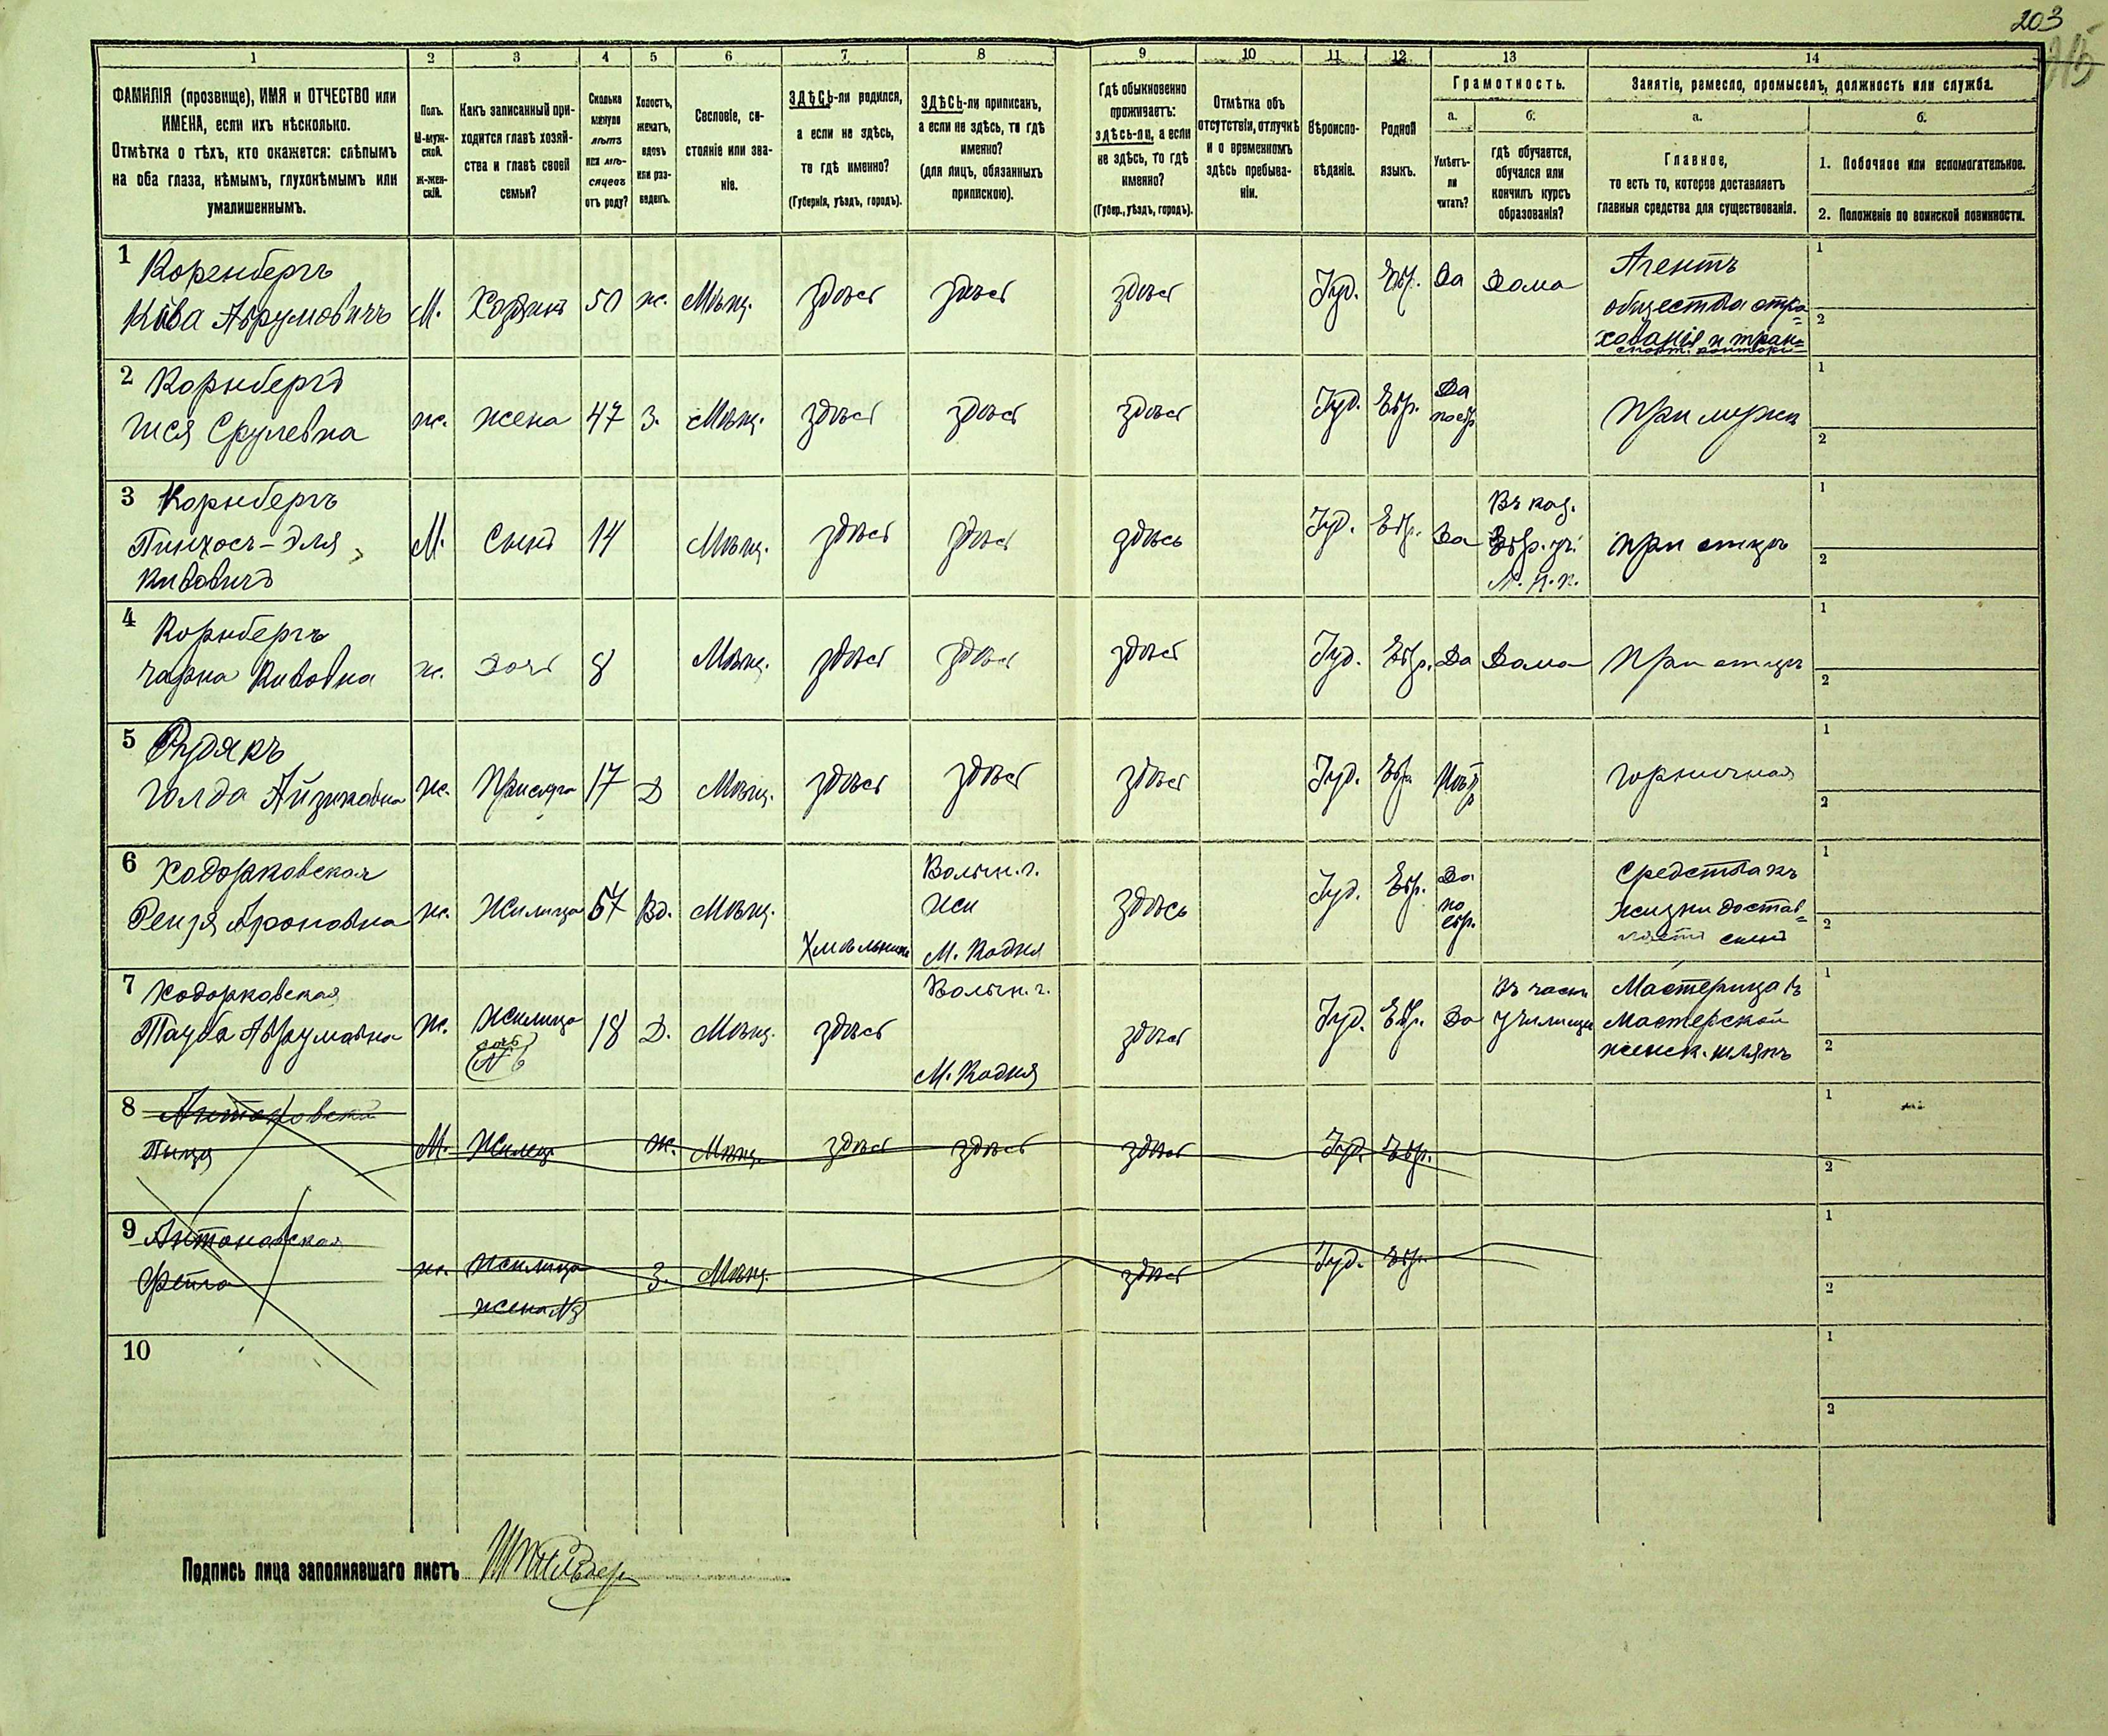 203
215
1 2 3 4 5 6 7 8 9 10 11 12 13 14
ФАМИЛІЯ (прозвище), ИМЯ и ОТЧЕСТВО или
ИМЕНА, если ихъ нѣсколько.
Отмѣтка о тѣхъ, кто окажется: слѣпымъ
на оба глаза, нѣмымъ, глухонѣмымъ или
умалишеннымъ.
Полъ.
М-муж-
ской.
Ж-жен-
скій.
Какъ записанный при-
ходится главѣ хозяй-
ства и главѣ своей
семьи?
Сколько
минуло
лѣтъ
или мѣ-
сяцевъ
отъ роду?
Холостъ,
женатъ,
вдовъ
или раз-
веденъ.
Сословіе, со-
стояніе или зва-
ніе.
ЗДѢСЬ-ли родился,
а если не здѣсь,
то гдѣ именно?
(Губернія, уѣздъ, городъ).
ЗДѢСЬ-ли приписанъ,
а если не здѣсь, то гдѣ
именно?
(для лицъ, обязанныхъ
припискою).
Гдѣ обыкновенно
проживаетъ:
здѣсь-ли, а если
не здѣсь, то гдѣ
именно?
(Губер., уѣздъ, городъ).
Отмѣтка объ
отсутствіи, отлучкѣ
и о временномъ
здѣсь пребыва-
ніи.
Вѣроиспо-
вѣданіе.
Родной
языкъ.
Грамотность.
а.
Умѣетъ-
ли
читать?
б.
гдѣ обучается,
обучался или
кончилъ курсъ
образованія?
Занятіе, ремесло, промыселъ, должность или служба.
а.
Главное,
то есть то, которое доставляетъ
главныя средства для существованія.
б.
1. Побочное или вспомогательное.
2. Положеніе по воинской повинности.
1 Коренбергъ
Кива Абрумовичъ М. Хозяинъ 50 ж. Мѣщ. здѣсь здѣсь здѣсь Іуд. Евр. Да Дома
Агентъ
общества стра=
хованія и тран=
спорт. конторы
1
2
2 Корнбергъ
Шея Срулевна ж. жена 47 З. Мѣщ. здѣсь здѣсь здѣсь Іуд. Евр.
Да
по евр
При мужѣ
1
2
3 Корнбергъ
Пинхосъ-Эля
Кивовичъ
М. Сынъ 14 Мѣщ. здѣсь здѣсь здѣсь Іуд. Евр. Да
Въ каз.
Евр. уч.
при отцѣ
1
2
4 Корнбергъ
Чарна Кивовна ж. Дочь 8 Мѣщ. здѣсь здѣсь здѣсь Іуд. Евр. Да Дома При отцѣ
1
2
5 Рудякъ
Голда Айзиковна ж. Прислуга 17 Д Мѣщ. здѣсь здѣсь здѣсь Іуд. Евр. горничная
1
2
6 Ходорковская
Рейзя Ароновна ж. Жилица 57 Вд. Мѣщ. Хмѣльникъ
Волын. г.
М. Кодня
здѣсь Іуд. Евр.
Да
по
евр.
Средства къ
жизни достав=
ляетъ сынъ
1
2
7 Ходорковская
Тауба Абрумовна ж.
Жилица
дочь
№ 6
18 Д. Мѣщ. здѣсь
Волын. г.
М. Кодня
здѣсь Іуд. Евр. Да
Въ частн
училищѣ
Мастерица въ
мастерской
женск. шляпъ
1
2
8 Антоновскій
М. Жилецъ ж. Мѣщ. здѣсь здѣсь здѣсь Іуд. Евр.
1
2
9 Антоновская
Фейга ж. Жилица З. Мѣщ. здѣсь Іуд. Евр.
жена №8
1
2
10
1
2
Подпись лица заполнявшаго листъ